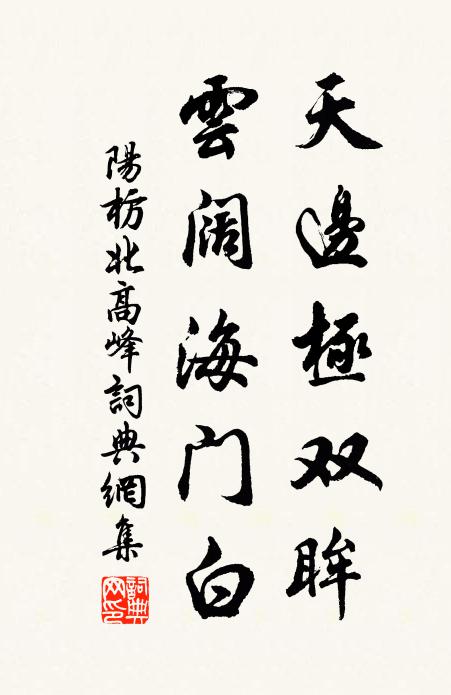 天邊極双眸
雲阔海门白
陽枋北高峰詞典網集
詞典網印